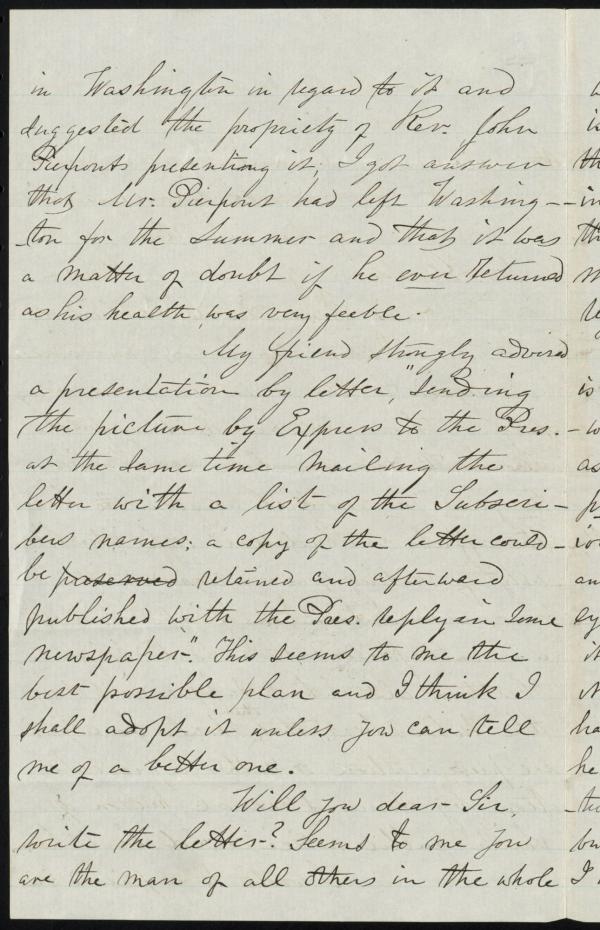 in Washington in regard to it and
suggested the propriety of Rev. John
Pierponts presenting it; I got answer
that Mr. Pierpont had left Washing-
-ton for the Summer and that it was
a matter of doubt if he ever returned
as his health was very feeble.
My friend strongly advised
a presentation by letter, "sending
the picture by Express to the Pres.
at the same time mailing the
letter with a list of the Subscri-
bers names; a copy of the letter could
be preserved retained and afterward
published with the Pres. reply in some
newspaper". This seems to me the
best possible plan and I think I
shall adopt it unless you can tell
me of a better one.
Will you dear Sir,
write the letter? Seems to me you
are the man of all others in the whole